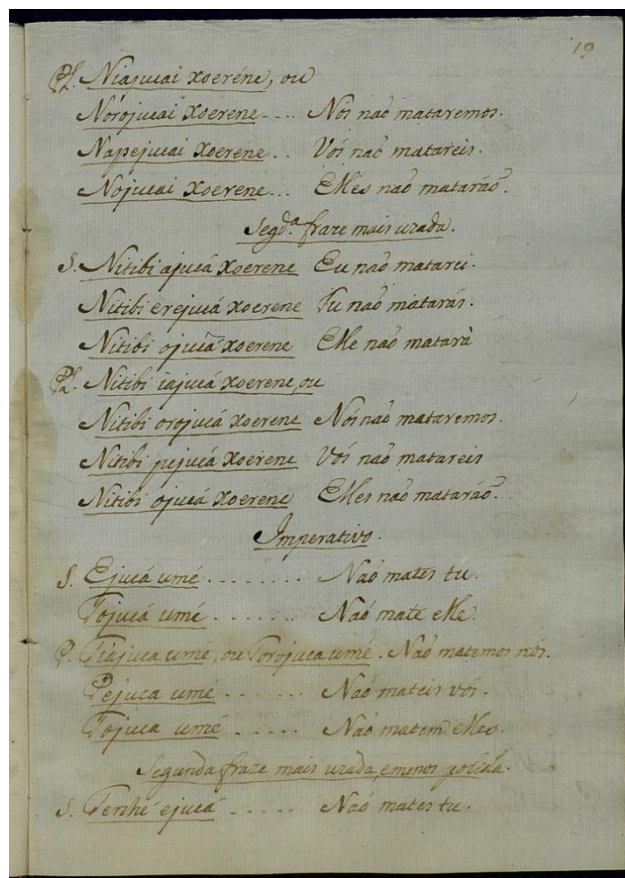 19
Pl. Niajucai xoeréne, ou
Norojucai xoerene.... Nós naõ mataremos.
Napejucai xoerene.. Vós naõ matareis.
Nojucai xoerene... Elles naõ mataráõ.
Segd.ª fraze mais uzada.
S. Nitibi ajucá xoerene Eu naõ matarei.
Nitibi erejucá xoerene Tu naõ matarás.
Nitibi ojucá xoerene Elle naõ matarà
Pl. Nitibi iajucá xoerene, ou
Nitibi orojucá xoerene Nós naõ mataremos.
Nitibi pejucá xoerene Vós naõ matareis
Nitibi ojucá xoerene Elles naõ mataráõ.
Imperativo.
S. Ejucá umé ........ Naõ mates tu.
Tojucá umé ........ Naõ mate elle.
P. Tiajuca umé, ou Torojuca umé. Naõ matemos nós.
Pejuca umé ....... Naõ mateis vós.
Tojuca umé ..... Naõ matem elles.
Segunda fraze mais uzada, e menos polida.
S. Tenhé ejucá ..... Naõ mates tu.